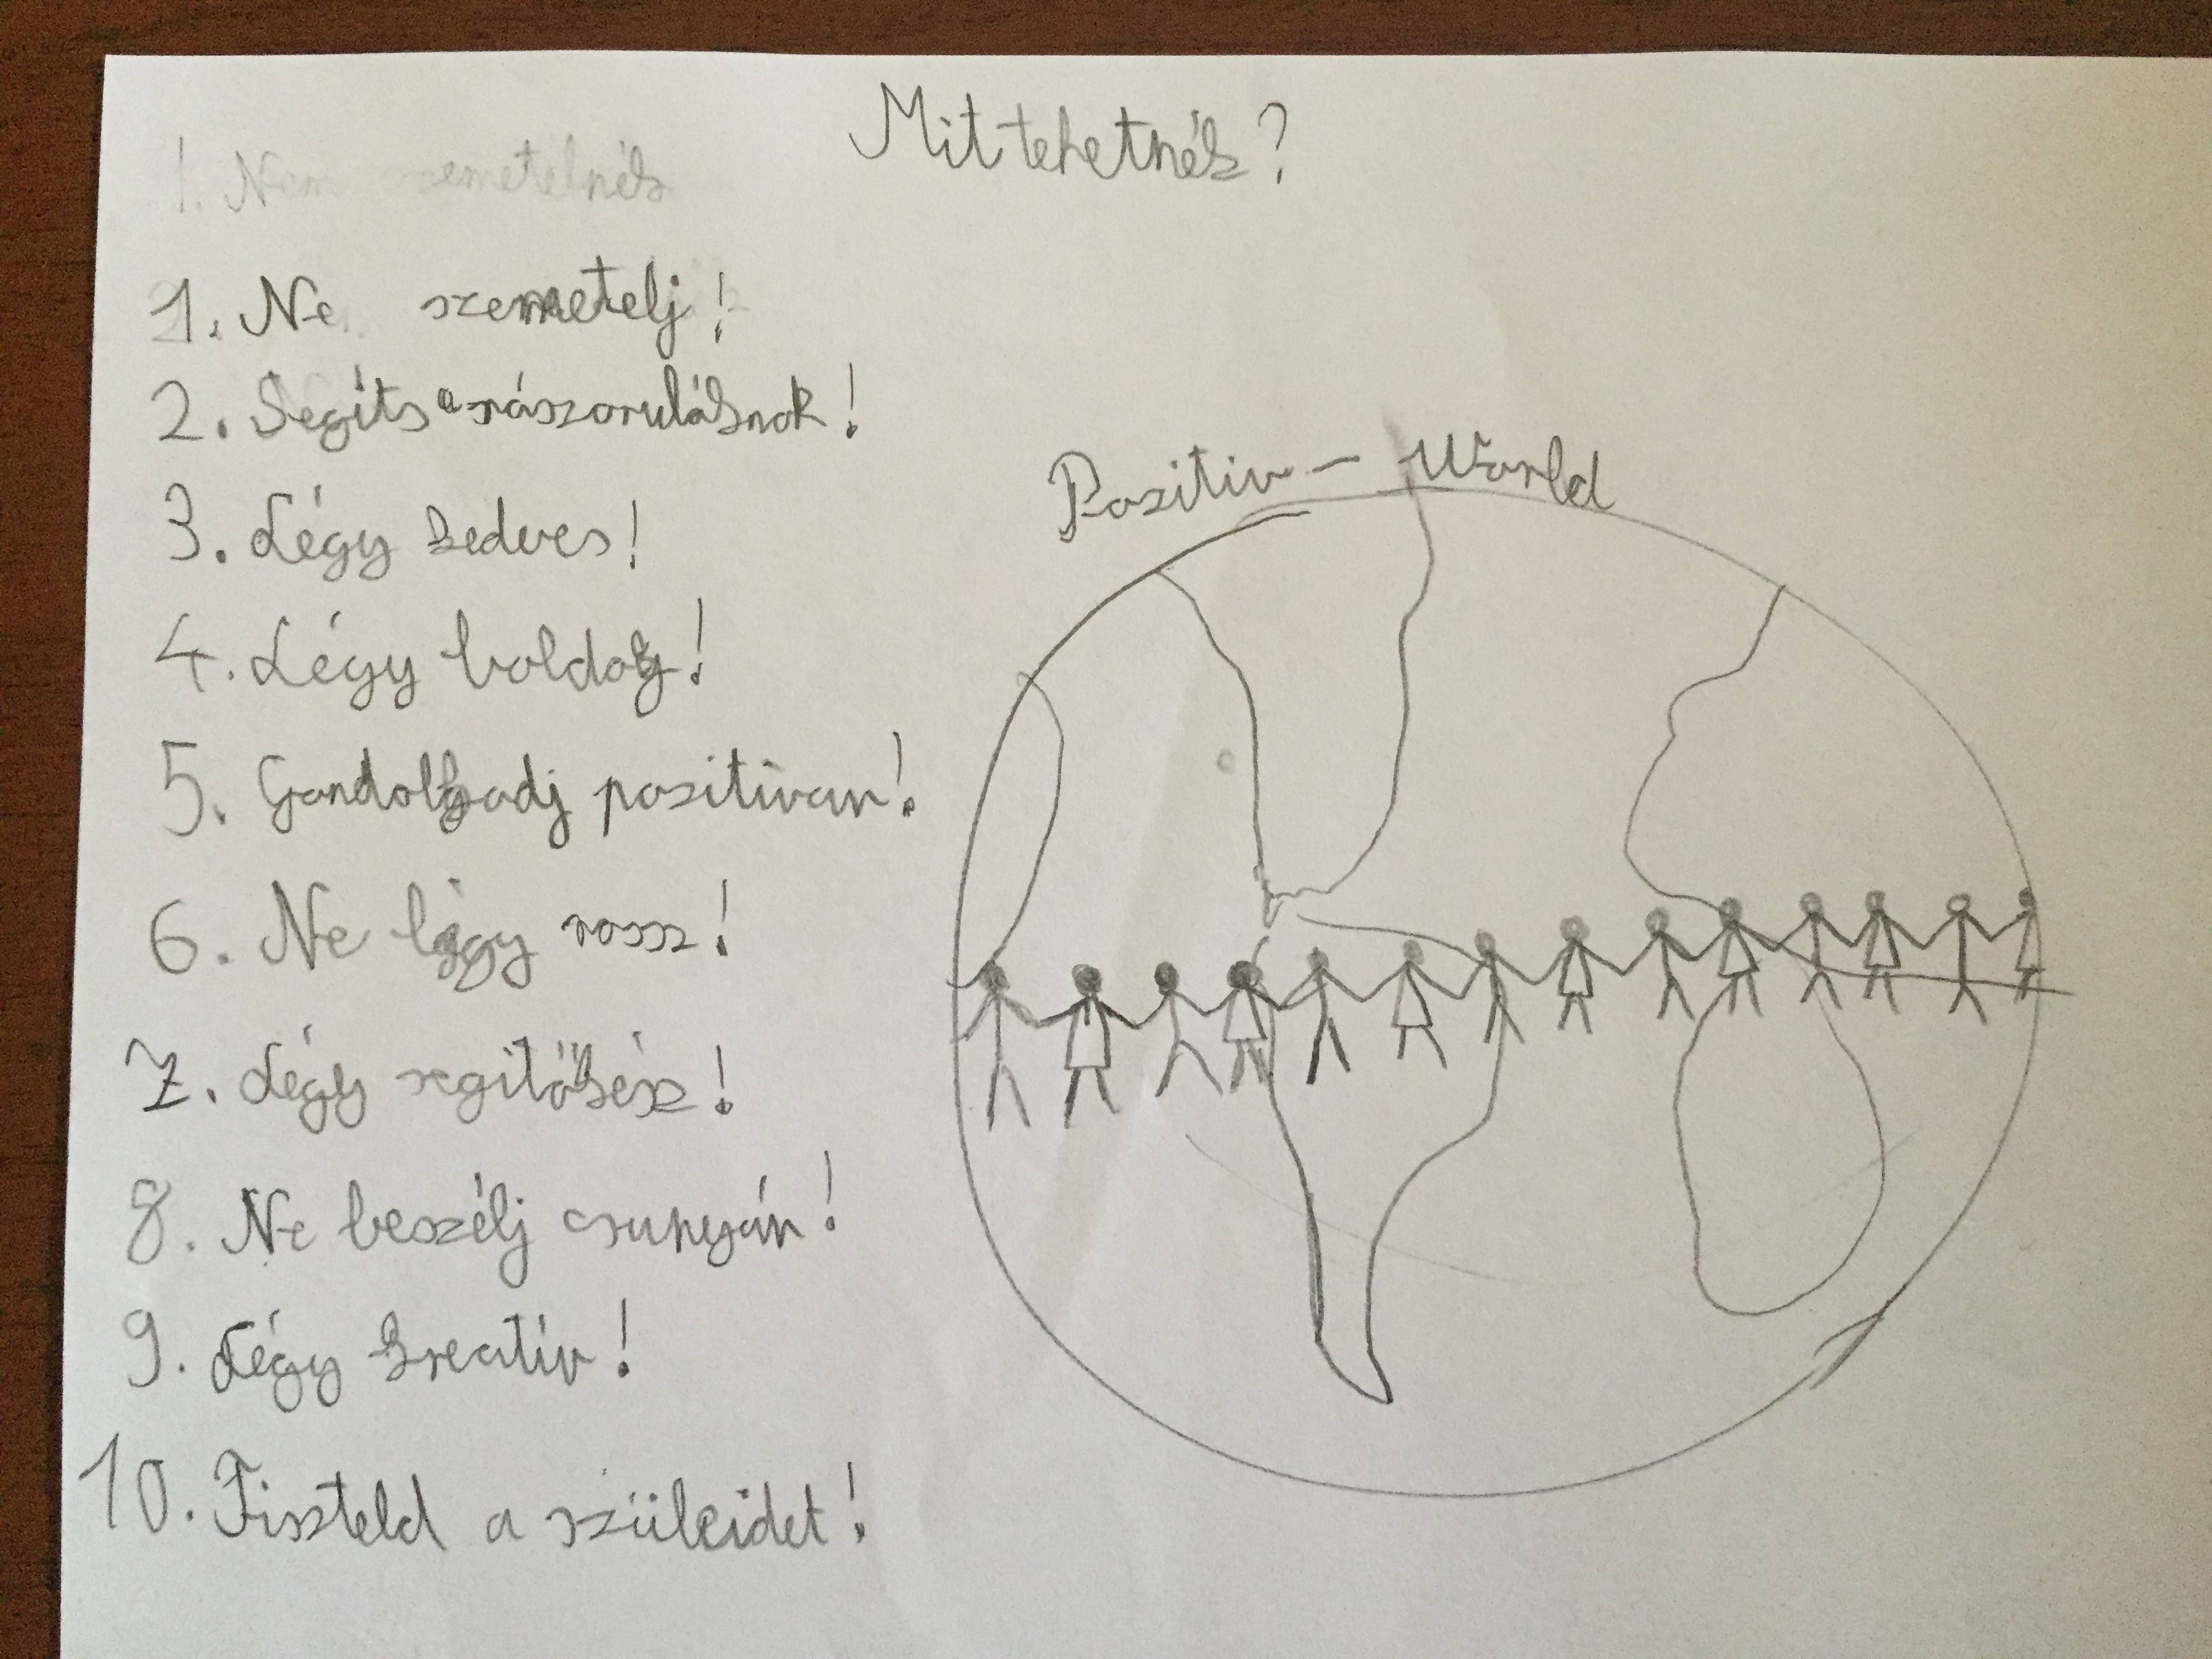 Mit tehetnék?
1. Nem szemetelnék
1. Ne szemetelj!
2. Segíts a rászorulóknak!
3. Légy kedves!
4. Légy boldog!
5. Gondolkodj pozitívan!
6. Ne légy rossz!
7. Légy segitőkész!
8. Ne beszélj csunyán!
9. Légy kreatív!
10. Tiszteld a szüleidet!
Pozitiv - World